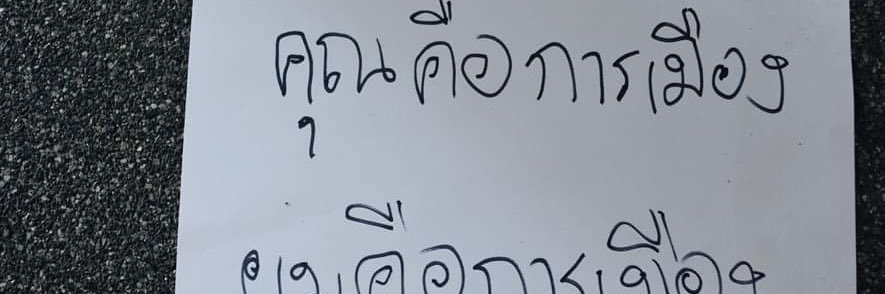 คุณคือการเมือง
คือการเมือง